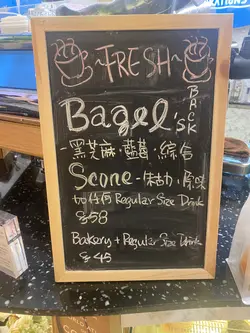 ~FRESH~
Bagel'sk
BACK
-黑芝麻·藍莓·綜合
Scone-朱古力,原味
加任何 Regular Size Drink
$58
Bakery + Regular Size Drink
$45